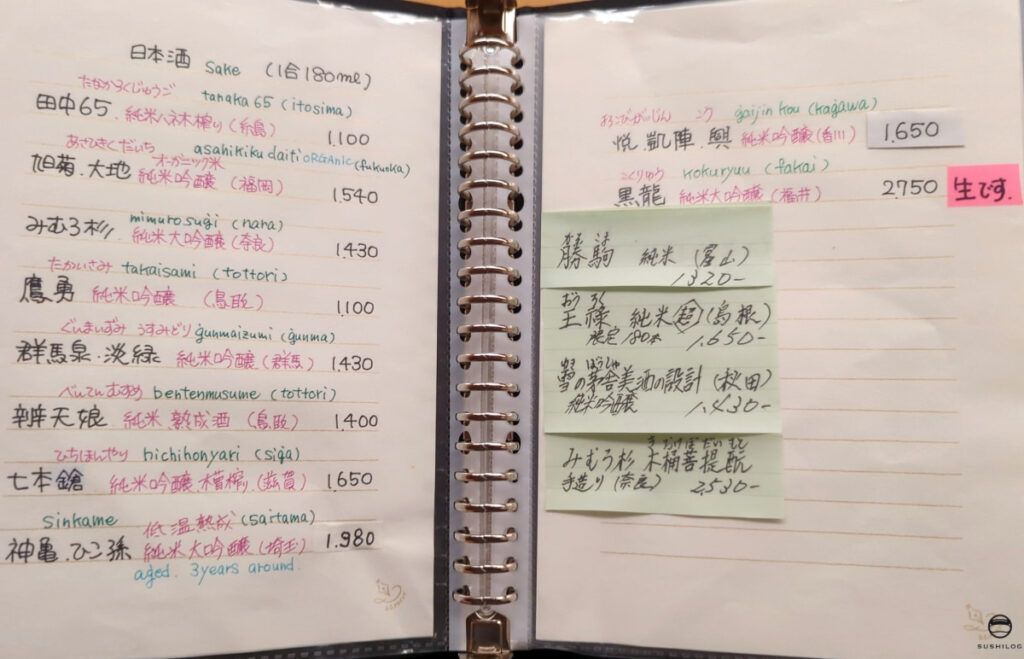 日本酒 sake (1合180ml)
たなかろくじゅうご tanaka65 (itosima)
田中65. 純米ハネ木搾り(糸島) 1.100
あさひきくだいち asahikiku daiti ORGANIC (fukuoka)
オーガニック米
旭菊.大地 純米吟醸 (福岡) 1.540
mimurosugi (nara)
みむろ杉. 純米大吟醸(奈良) 1.430
たかいさみ takaisami (tottori)
鷹勇 純米吟醸 (鳥取) 1.100
ぐんまいずみ うすみどり gunmaizumi (gunma)
群馬泉.淡緑 純米吟醸(群馬) 1.430
べんてんむすめ bentenmusume (tottori)
辨天娘 純米 熟成酒 (鳥取) 1.400
hichihonyari (siga)
七本鎗 純米吟醸. (滋賀) 1.650
sinkame 低温熟成 (saitama)
神亀.ひこ孫 純米大吟醸(埼玉) 1.980
aged. 3years around.
こう gaijin kou (kagawa)
悦.凱陣.興 純米吟醸(香川) 1.650
こくりゅう kokuryuu (fukui)
黒龍 純米大吟醸(福井) 2.750 生です.
勝駒 純米 (富山)
1320-
おうろく
王祿 純米 超 (島根)
限定 1.650-
ゆき ぼうしゃ
雪の茅舎美酒の設計(秋田)
純米吟醸 1.430-
きおけぼだいもと
みむろ杉 木桶菩提酛
手造り(奈良) 2530-
SUSHILOG